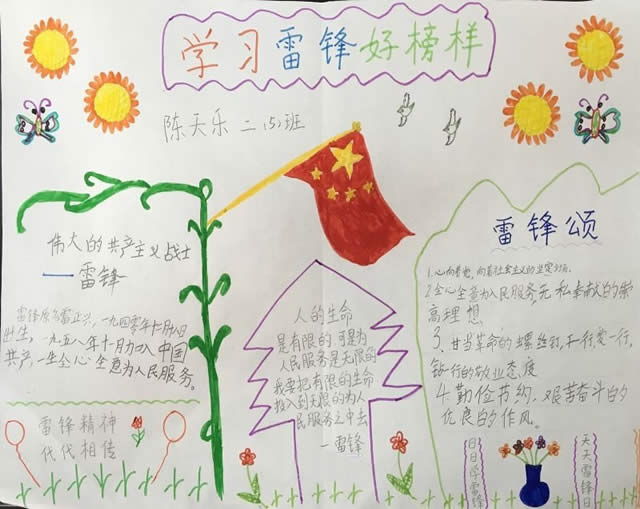 学习雷锋好榜样
陈天乐 二(5)班
伟大的共产主义战士
一雷锋
雷锋原名雷正兴，一九四零年十月八日
出生，一九五八年十月力加入中国
共产，一生全心全意为人民服务。
雷锋精神
代代相传
人的生命
是有限的可是为
人民服务是无限的
我要把有限的生命
投入到无限的为人
民服务之中去
一雷锋
雷锋颂
1.心向着党，向着社会主义的坚定
2.全心全意为人民服务无私奉献的崇
高理想
3、甘当革命的螺丝钉，干一行爱一行，
钻一行的敬业态度
4.勤俭节约，艰苦奋斗的
优良的作风。
日日学雷锋
天天雷锋日